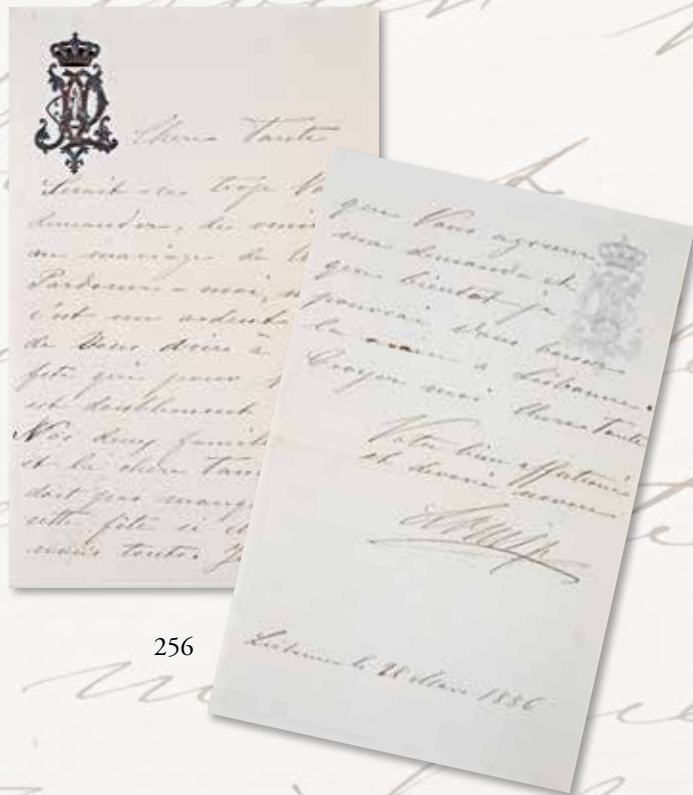 Chère Tante
Serait-ce trop Vous
demander, de venir
au mariage de
Pardonnez-moi,
c'est un ardent
de Vous avoir à
fête qui pour
est doublement
Nos deux familles
et la chère Tante
doit pas manquer
cette fête si
mais toutes
que Vous agréerez
ma demande et
que bientôt je
pourrai Vous baiser
la main à Lisbonne.
Croyez moi Chère Tante
Votre bien affectionné
et dévoué neveu
Lisbonne le 28 Mars 1886
256